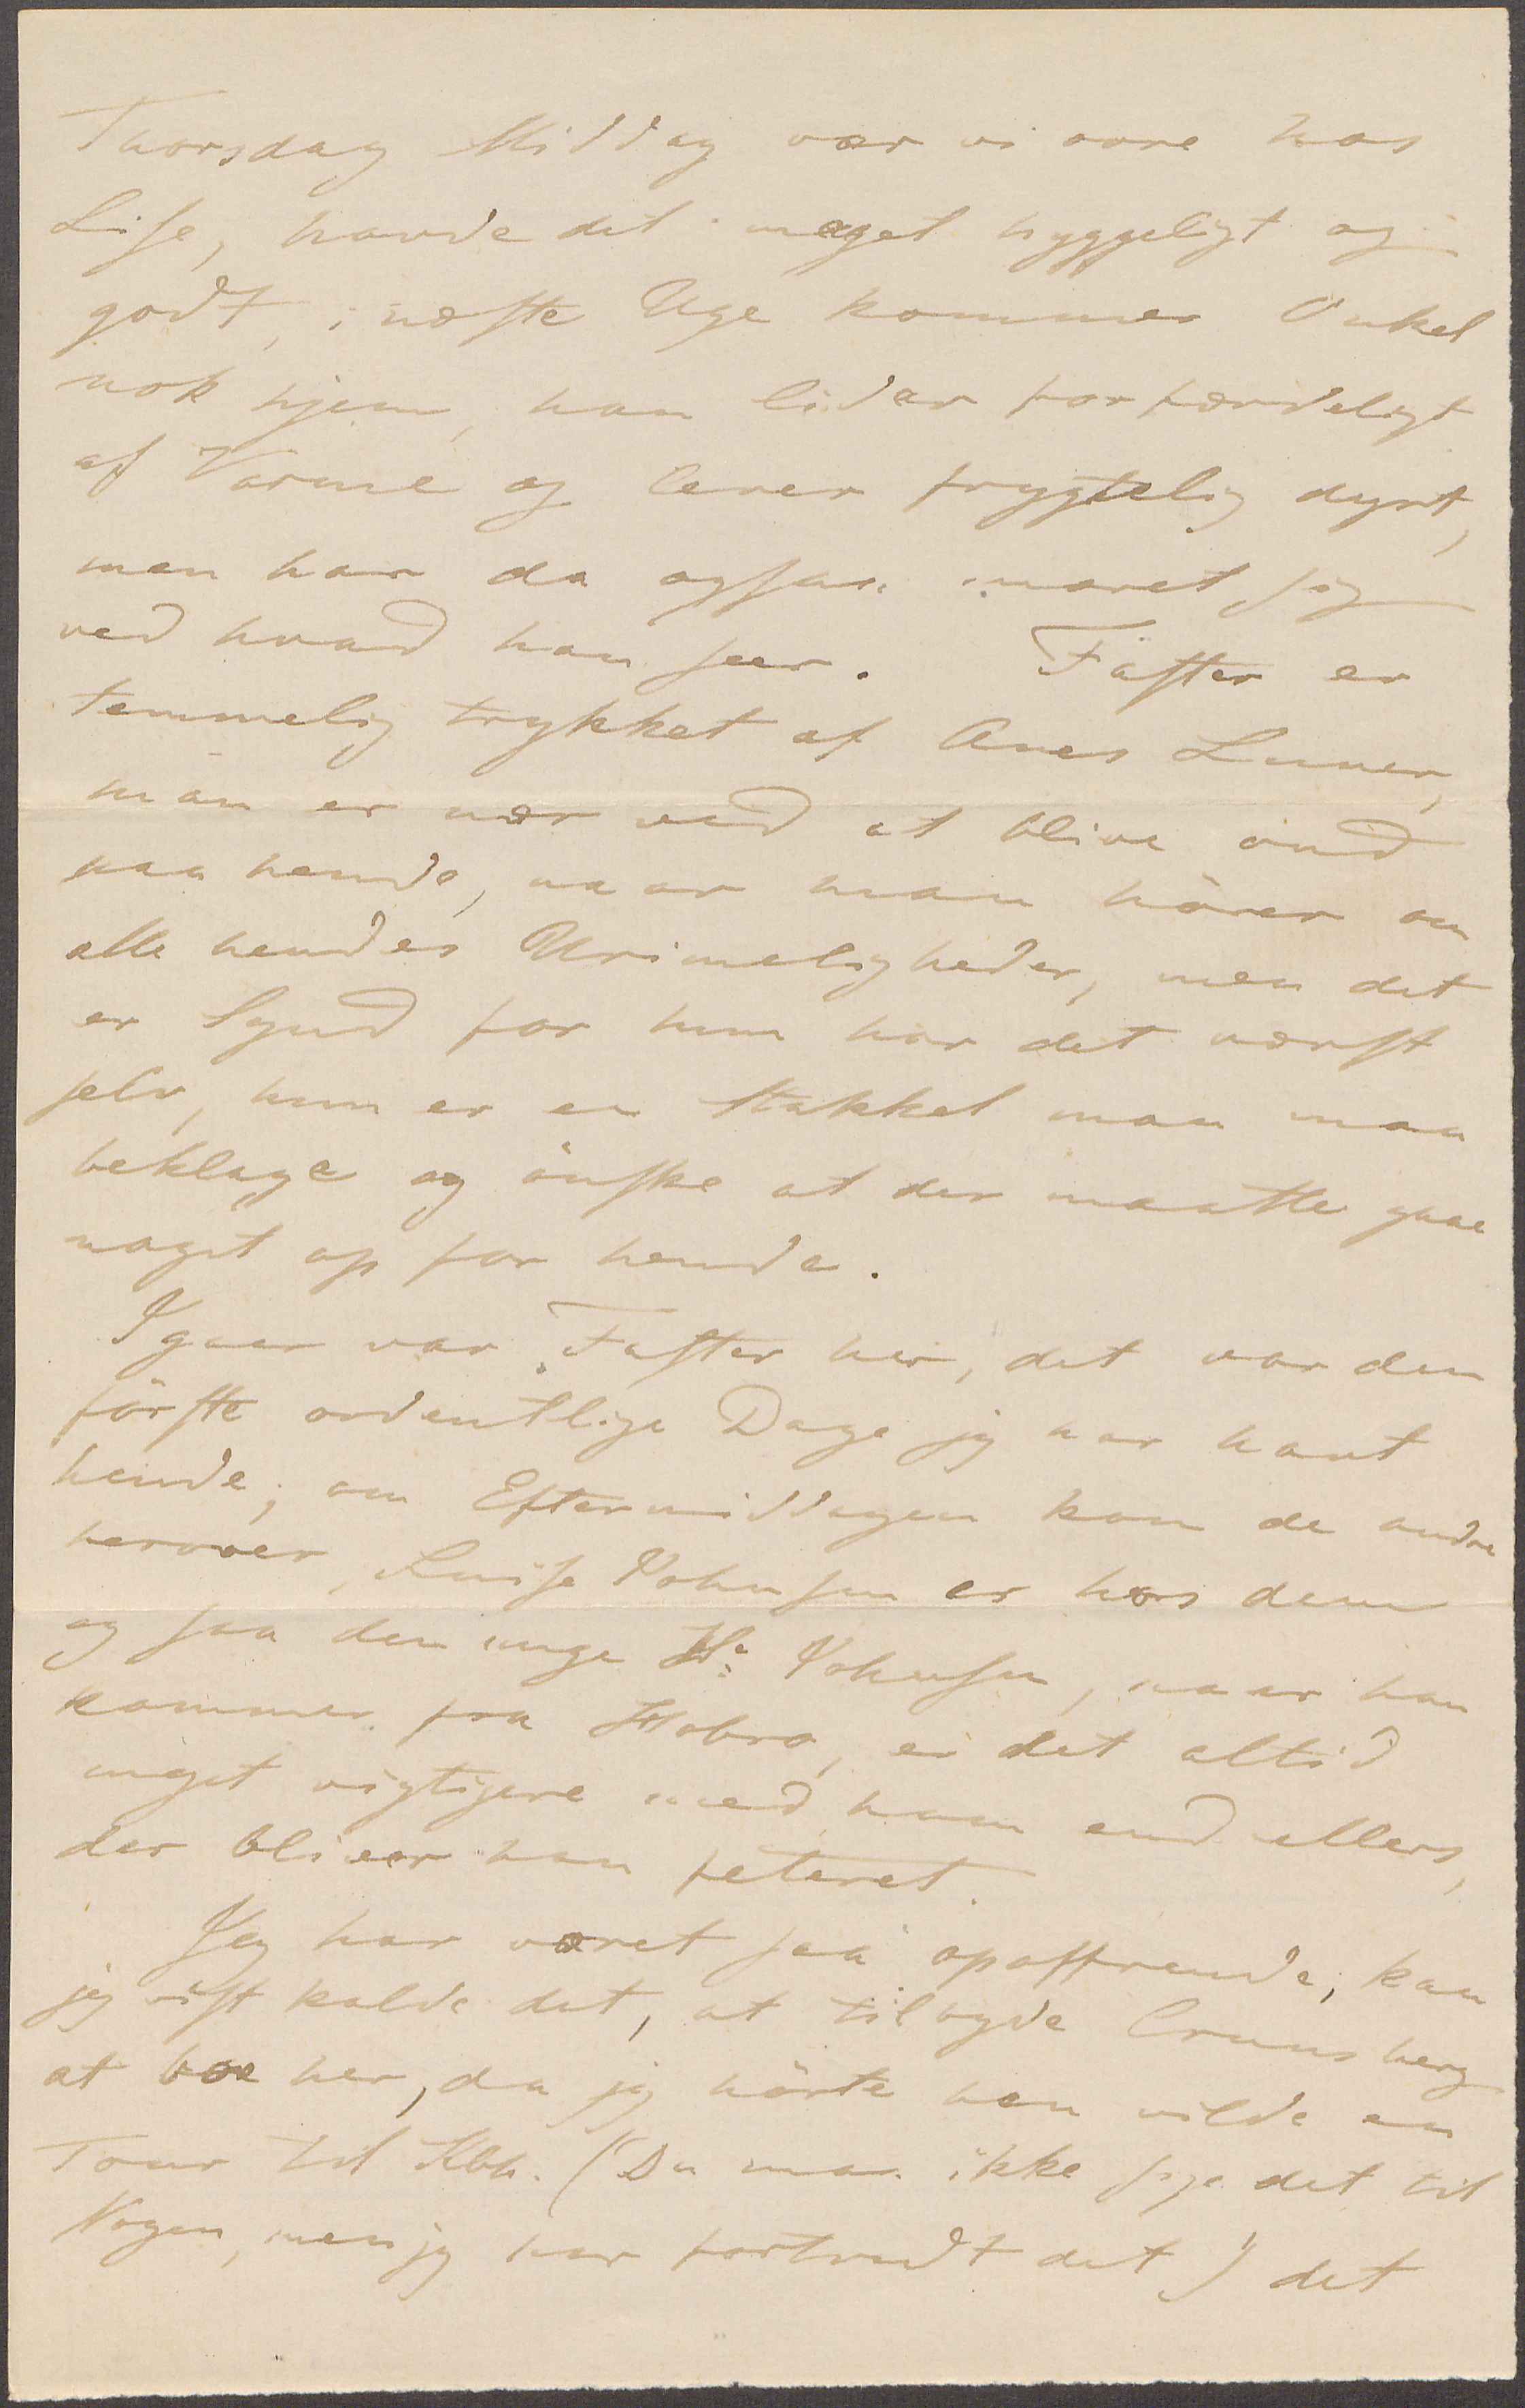 Thorsdag Middag var vi ovre hos
Lise, havde det meget hyggeligt og
godt, i næste Uge kommer Onkel
nok hjem, han lider forfærdeligt
af Varme og lever frygtelig dyrt,
men har da ogsaa moret sig
ved hvad han seer. Faster er
temmelig trykket af Anes Luner,
man er nær ved at blive ond
paa hende, naar man hörer om
alle hendes Urimeligheder, men det
er Synd for hun har det værst
selv, hun er en Stakkel man maa
beklage og önske at der maatte gaae
noget op for hende.
Igaar var Faster her, det var den
förste ordentlige Dage jeg har havt
hende, om Eftermiddagen kom de andre
herover, Luise Johnsen er hos dem
og saa den unge Hr. Johnsen, naar han
kommer fra Hobro, er det altid
meget vigtigere med ham end ellers,
der bliver han feteret.
Jeg har været saa opoffrende, kan
jeg vist kalde det, at tilbyde
at boe her, da jeg hörte han vilde en
Tour til Kbh. (Du maa ikke sige det til
Nogen, men jeg har fortrudt det) det